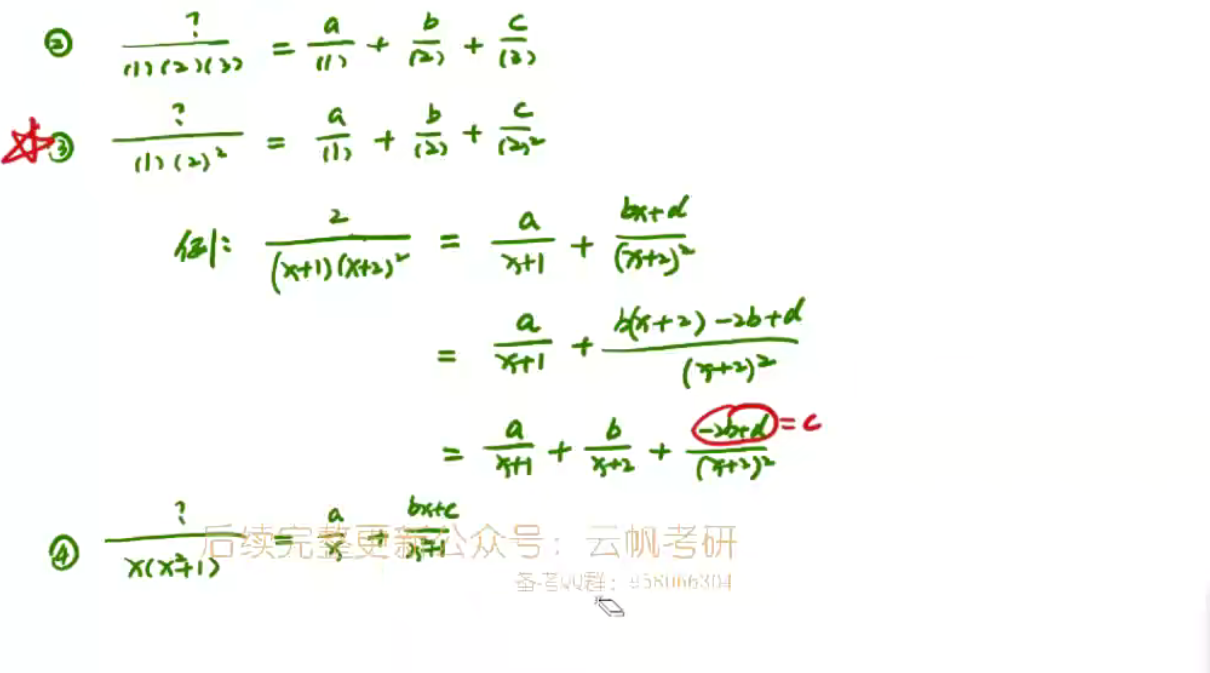 ② ?/((1)(2)(3)) = a/(1) + b/(2) + c/(3)
③ ?/((1)(2)²) = a/(1) + b/(2) + c/(2)²
例: 2/((x+1)(x+2)²) = a/(x+1) + (bx+d)/(x+2)²
= a/(x+1) + (b(x+2)-2b+d)/(x+2)²
= a/(x+1) + b/(x+2) + (-2b+d)/(x+2)² = c
④ ?/(x(x²+1)) = a/x + (bx+c)/(x²+1)
后续完整更新公众号：云帆考研
备考QQ群：958066304